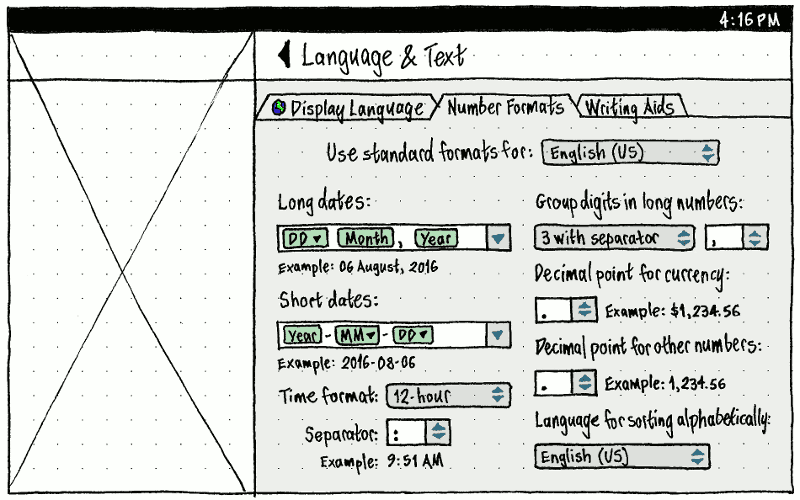 4:16 PM
Language & Text
Display Language
Number Formats
Writing Aids
Use standard formats for: English (US)
Long dates:
DD Month, Year
Example: 06 August, 2016
Short dates:
Year - MM - DD
Example: 2016-08-06
Time format: 12-hour
Separator: :
Example: 9:51 AM
Group digits in long numbers:
3 with separator ,
Decimal point for currency:
. Example: $1,234.56
Decimal point for other numbers:
. Example: 1,234.56
Language for sorting alphabetically:
English (US)